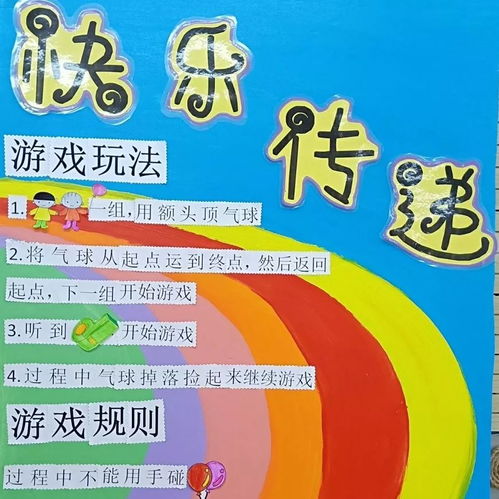 快乐传递
游戏玩法
1.一组,用额头顶气球
2.将气球从起点运到终点,然后返回
起点,下一组开始游戏
3.听到开始游戏
4.过程中气球掉落捡起来继续游戏
游戏规则
过程中不能用手碰